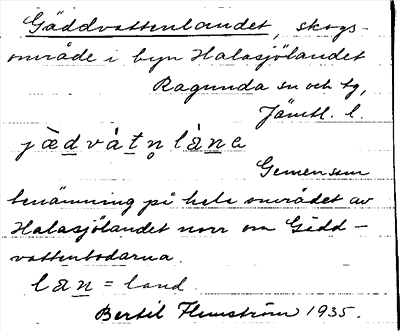 Gäddvattenlandet, skogs-
område i byn Halasjölandet
Ragunda sn och tg,
Jämtl. l.
jæ̀dvátn̥làna
Gemensam
benämning på hela området av
Halasjölandet norr om Gädd-
vattenbodarna.
lan = land
Bertil Flemström 1935.